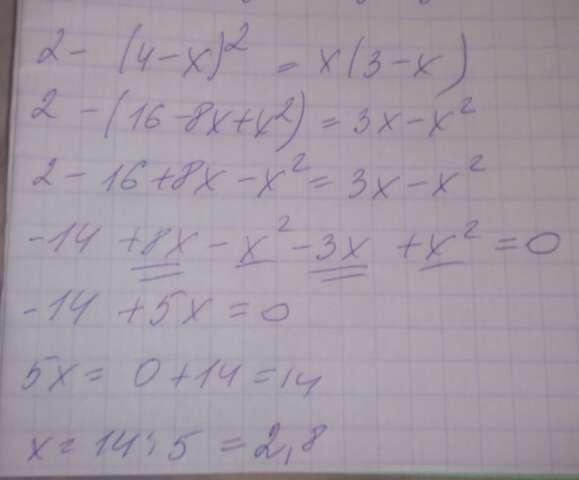 2 - (4-x)² = x(3-x)
2 - (16-8x+x²) = 3x-x²
2 - 16+8x-x² = 3x-x²
-14 +8x - x² -3x +x² = 0
-14 +5x = 0
5x = 0+14 = 14
x = 14:5 = 2,8